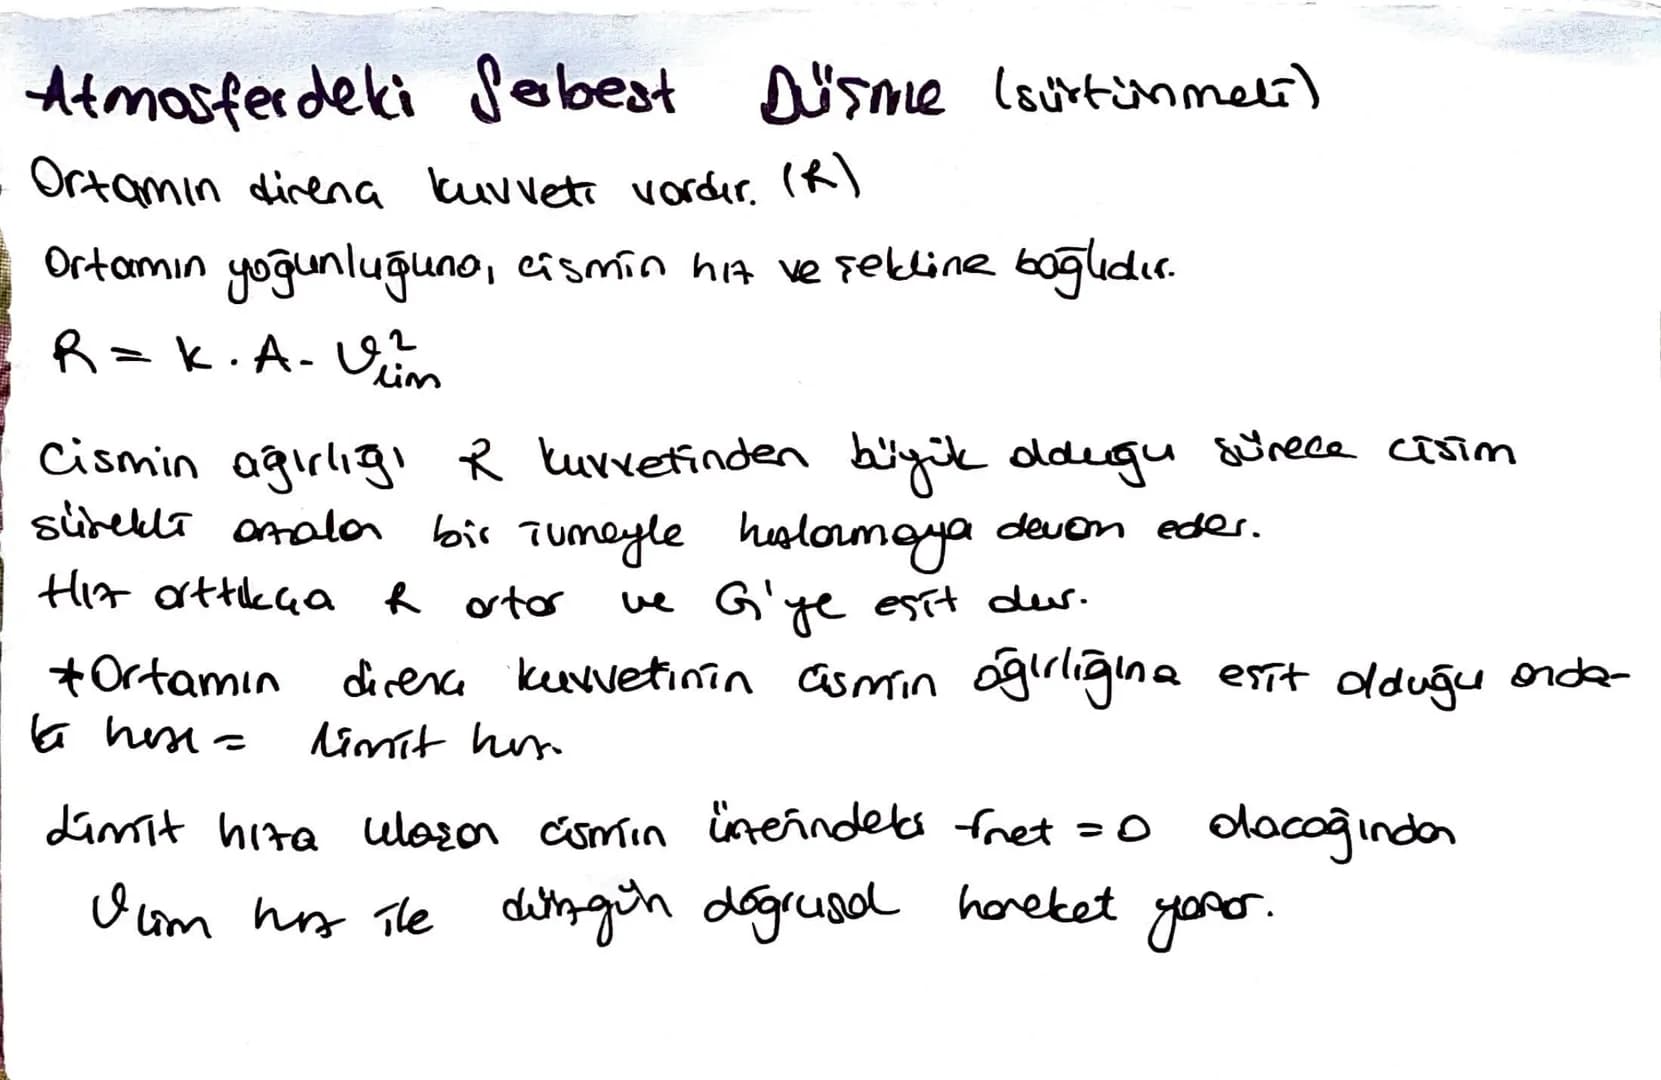 Atmosferdeki Serbest Düşme (sürtünmeli)
Ortamın direnci kuvveti vardır. (R)
Ortamın yoğunluğuna, cismin hız ve şekline bağlıdır.
R = k . A . υ²lim
Cismin ağırlığı R kuvvetinden büyük olduğu sürece cisim
sürekli azalan bir ivmeyle hızlanmaya devam eder.
Hız arttıkça R artar ve G'ye eşit olur.
*Ortamın direnci kuvvetinin cismin ağırlığına eşit olduğu anda-
ki hızı = limit hız.
Limit hıza ulaşan cismin üzerindeki fnet = 0 olacağından
υlim hız ile düzgün doğrusal hareket yapar.